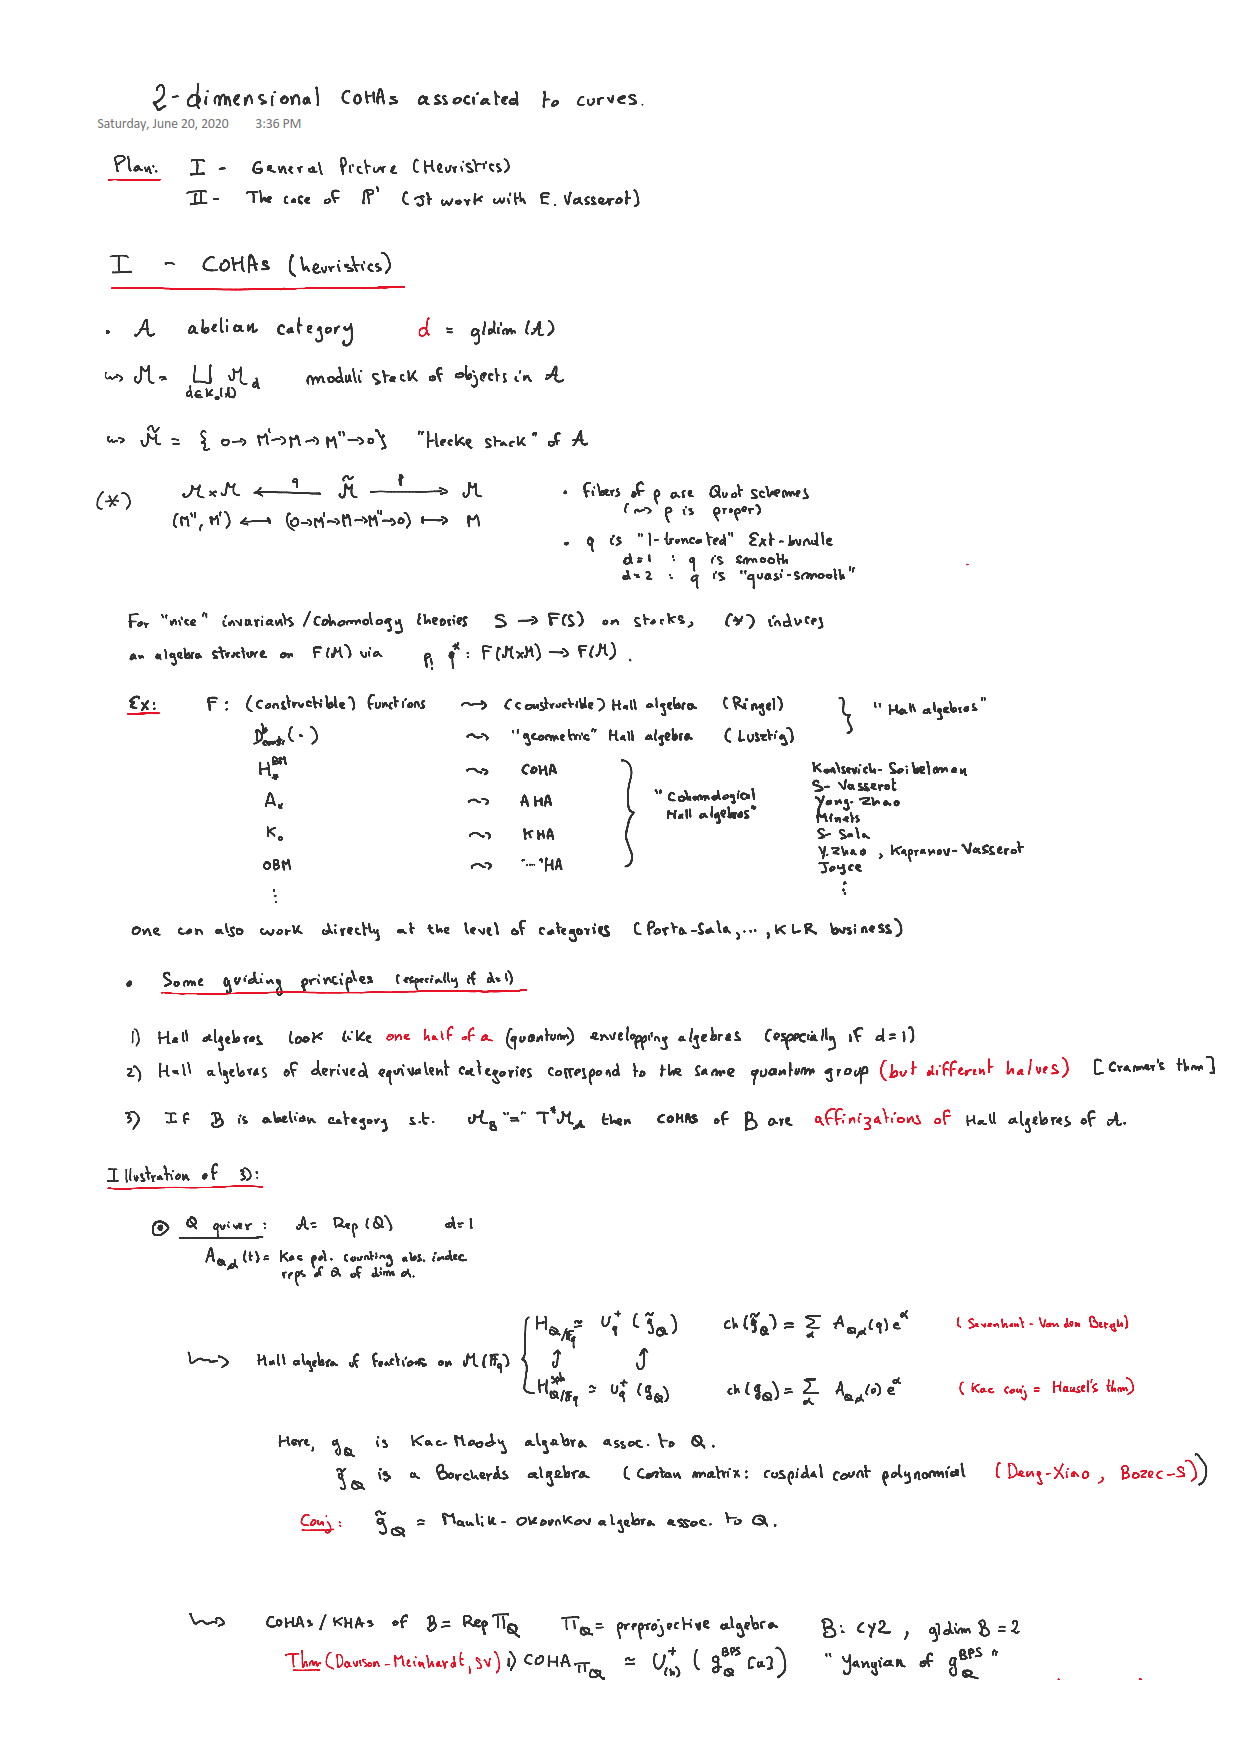 2-dimensional COHAs associated to curves.
Saturday, June 20, 2020 3:36 PM
Plan: I - General Picture (Heuristics)
II - The case of P¹ (Jt work with E. Vasserot)
I - COHAs (heuristics)
• A abelian category d = gldim(A)
↝ M = ⊔_{d∈K₀(A)} M_d moduli stack of objects in A
↝ M̃ = { 0→M'→M→M''→0} "Hecke stack" of A
(*) M×M ←q— M̃ —p→ M • fibers of p are Quot schemes
(⤳ p is proper)
(M'', M') ⟵ (0→M'→M→M''→0) ⟼ M
• q is "1-truncated" Ext-bundle
d=1 : q is smooth
d=2 : q is "quasi-smooth"
For "nice" invariants/cohomology theories S → F(S) on stacks, (*) induces
an algebra structure on F(M) via p_! q^* : F(M×M) → F(M).
Ex: F: (constructible) functions ⤳ (constructible) Hall algebra (Ringel) } "Hall algebras"
D^b_{const}(·) ⤳ "geometric" Hall algebra (Lusztig)
H_*^{BM} ⤳ COHA Kontsevich-Soibelman
S-Vasserot
A_* ⤳ AHA } "Cohomological Hall algebras" Yang-Zhao
Minets
K₀ ⤳ KHA S-Sala
Y.Zhao, Kapranov-Vasserot
OBM ⤳ "...'HA Joyce
⋮ ⋮
One can also work directly at the level of categories (Porta-Sala,..., KLR business)
• Some guiding principles (especially if d=1)
1) Hall algebras look like one half of a (quantum) envelopping algebras (especially if d=1)
2) Hall algebras of derived equivalent categories correspond to the same quantum group (but different halves) [Cramer's thm]
3) If B is abelian category s.t. M_B "=" T*M_A then COHAs of B are affinizations of Hall algebras of A.
Illustration of 3):
⊙ Q quiver: A = Rep(Q) d=1
A_{Q,d}(t) = Kac pol. counting abs. indec.
reps of Q of dim d.
H_{Q/F_q} ≃ U_q^+(g̃_Q) ch(g̃_Q) = Σ_α A_{Q,α}(q)e^α (Sevenhant-Van den Bergh)
↳ Hall algebra of functions on M(F_q) { ↑ ↑
H^{sph}_{Q/F_q} ≃ U_q^+(g_Q) ch(g_Q) = Σ_α A_{Q,α}(0)e^α (Kac conj = Hausel's thm)
Here, g_Q is Kac-Moody algebra assoc. to Q.
g̃_Q is a Borcherds algebra (Cartan matrix: cuspidal count polynomial (Deng-Xiao, Bozec-S))
Conj: g̃_Q = Maulik-Okounkov algebra assoc. to Q.
↳ COHAs/KHAs of B = Rep Π_Q Π_Q = preprojective algebra B: CY2, gldim B=2
Thm (Davison-Meinhardt, SV) i) COHA_{Π_Q} ≃ U_{(ħ)}^+(g_Q^{BPS}[u]) "Yangian of g_Q^{BPS}"